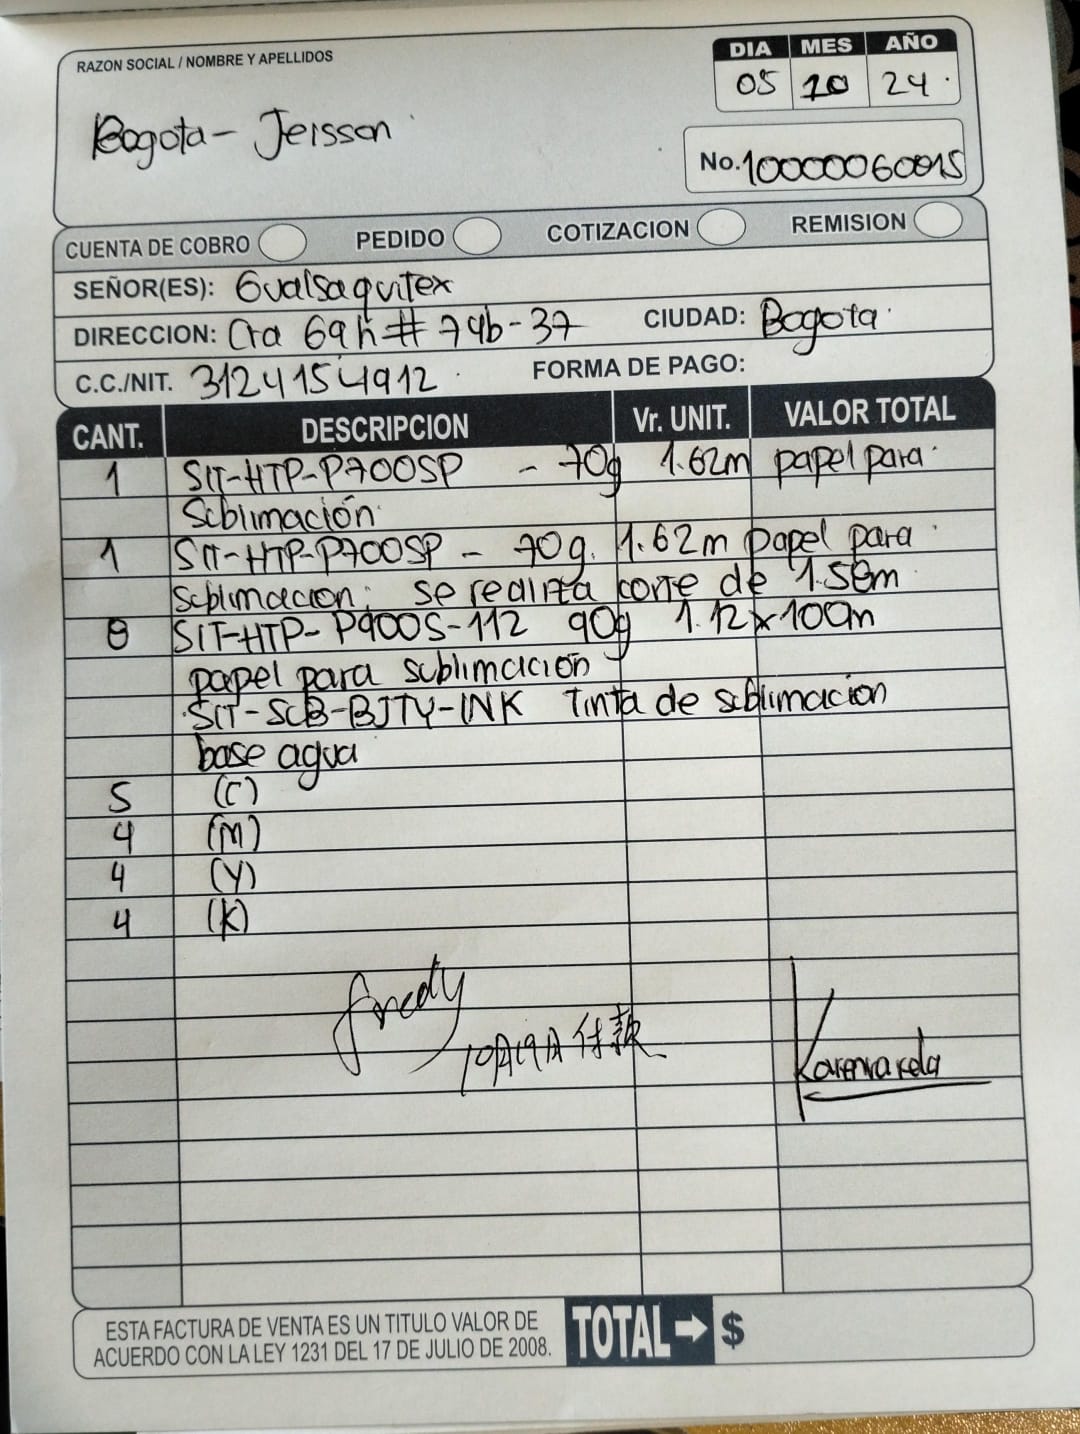 RAZON SOCIAL / NOMBRE Y APELLIDOS
DIA MES AÑO
05 10 24
Bogota - Jeisson
No. 10000060015
CUENTA DE COBRO PEDIDO COTIZACION REMISION
SEÑOR(ES): Gualsaquitex
DIRECCION: Cra 69h # 74b-37 CIUDAD: Bogota
C.C./NIT. 3124154912 FORMA DE PAGO:
CANT. DESCRIPCION Vr. UNIT. VALOR TOTAL
1 SIT-HTP-P700SP - 70g 1.62m papel para
Sublimación
1 SIT-HTP-P700SP - 70g. 1.62m papel para
sublimacion; se realiza corte de 1.58m
8 SIT-HTP-P900S-112 90g 1.12x100m
papel para sublimación
SIT-SUB-BJTY-INK Tinta de sublimacion
base agua
5 (C)
4 (M)
4 (Y)
4 (K)
Fredy
10月19日付款
Karen
ESTA FACTURA DE VENTA ES UN TITULO VALOR DE
ACUERDO CON LA LEY 1231 DEL 17 DE JULIO DE 2008.
TOTAL → $